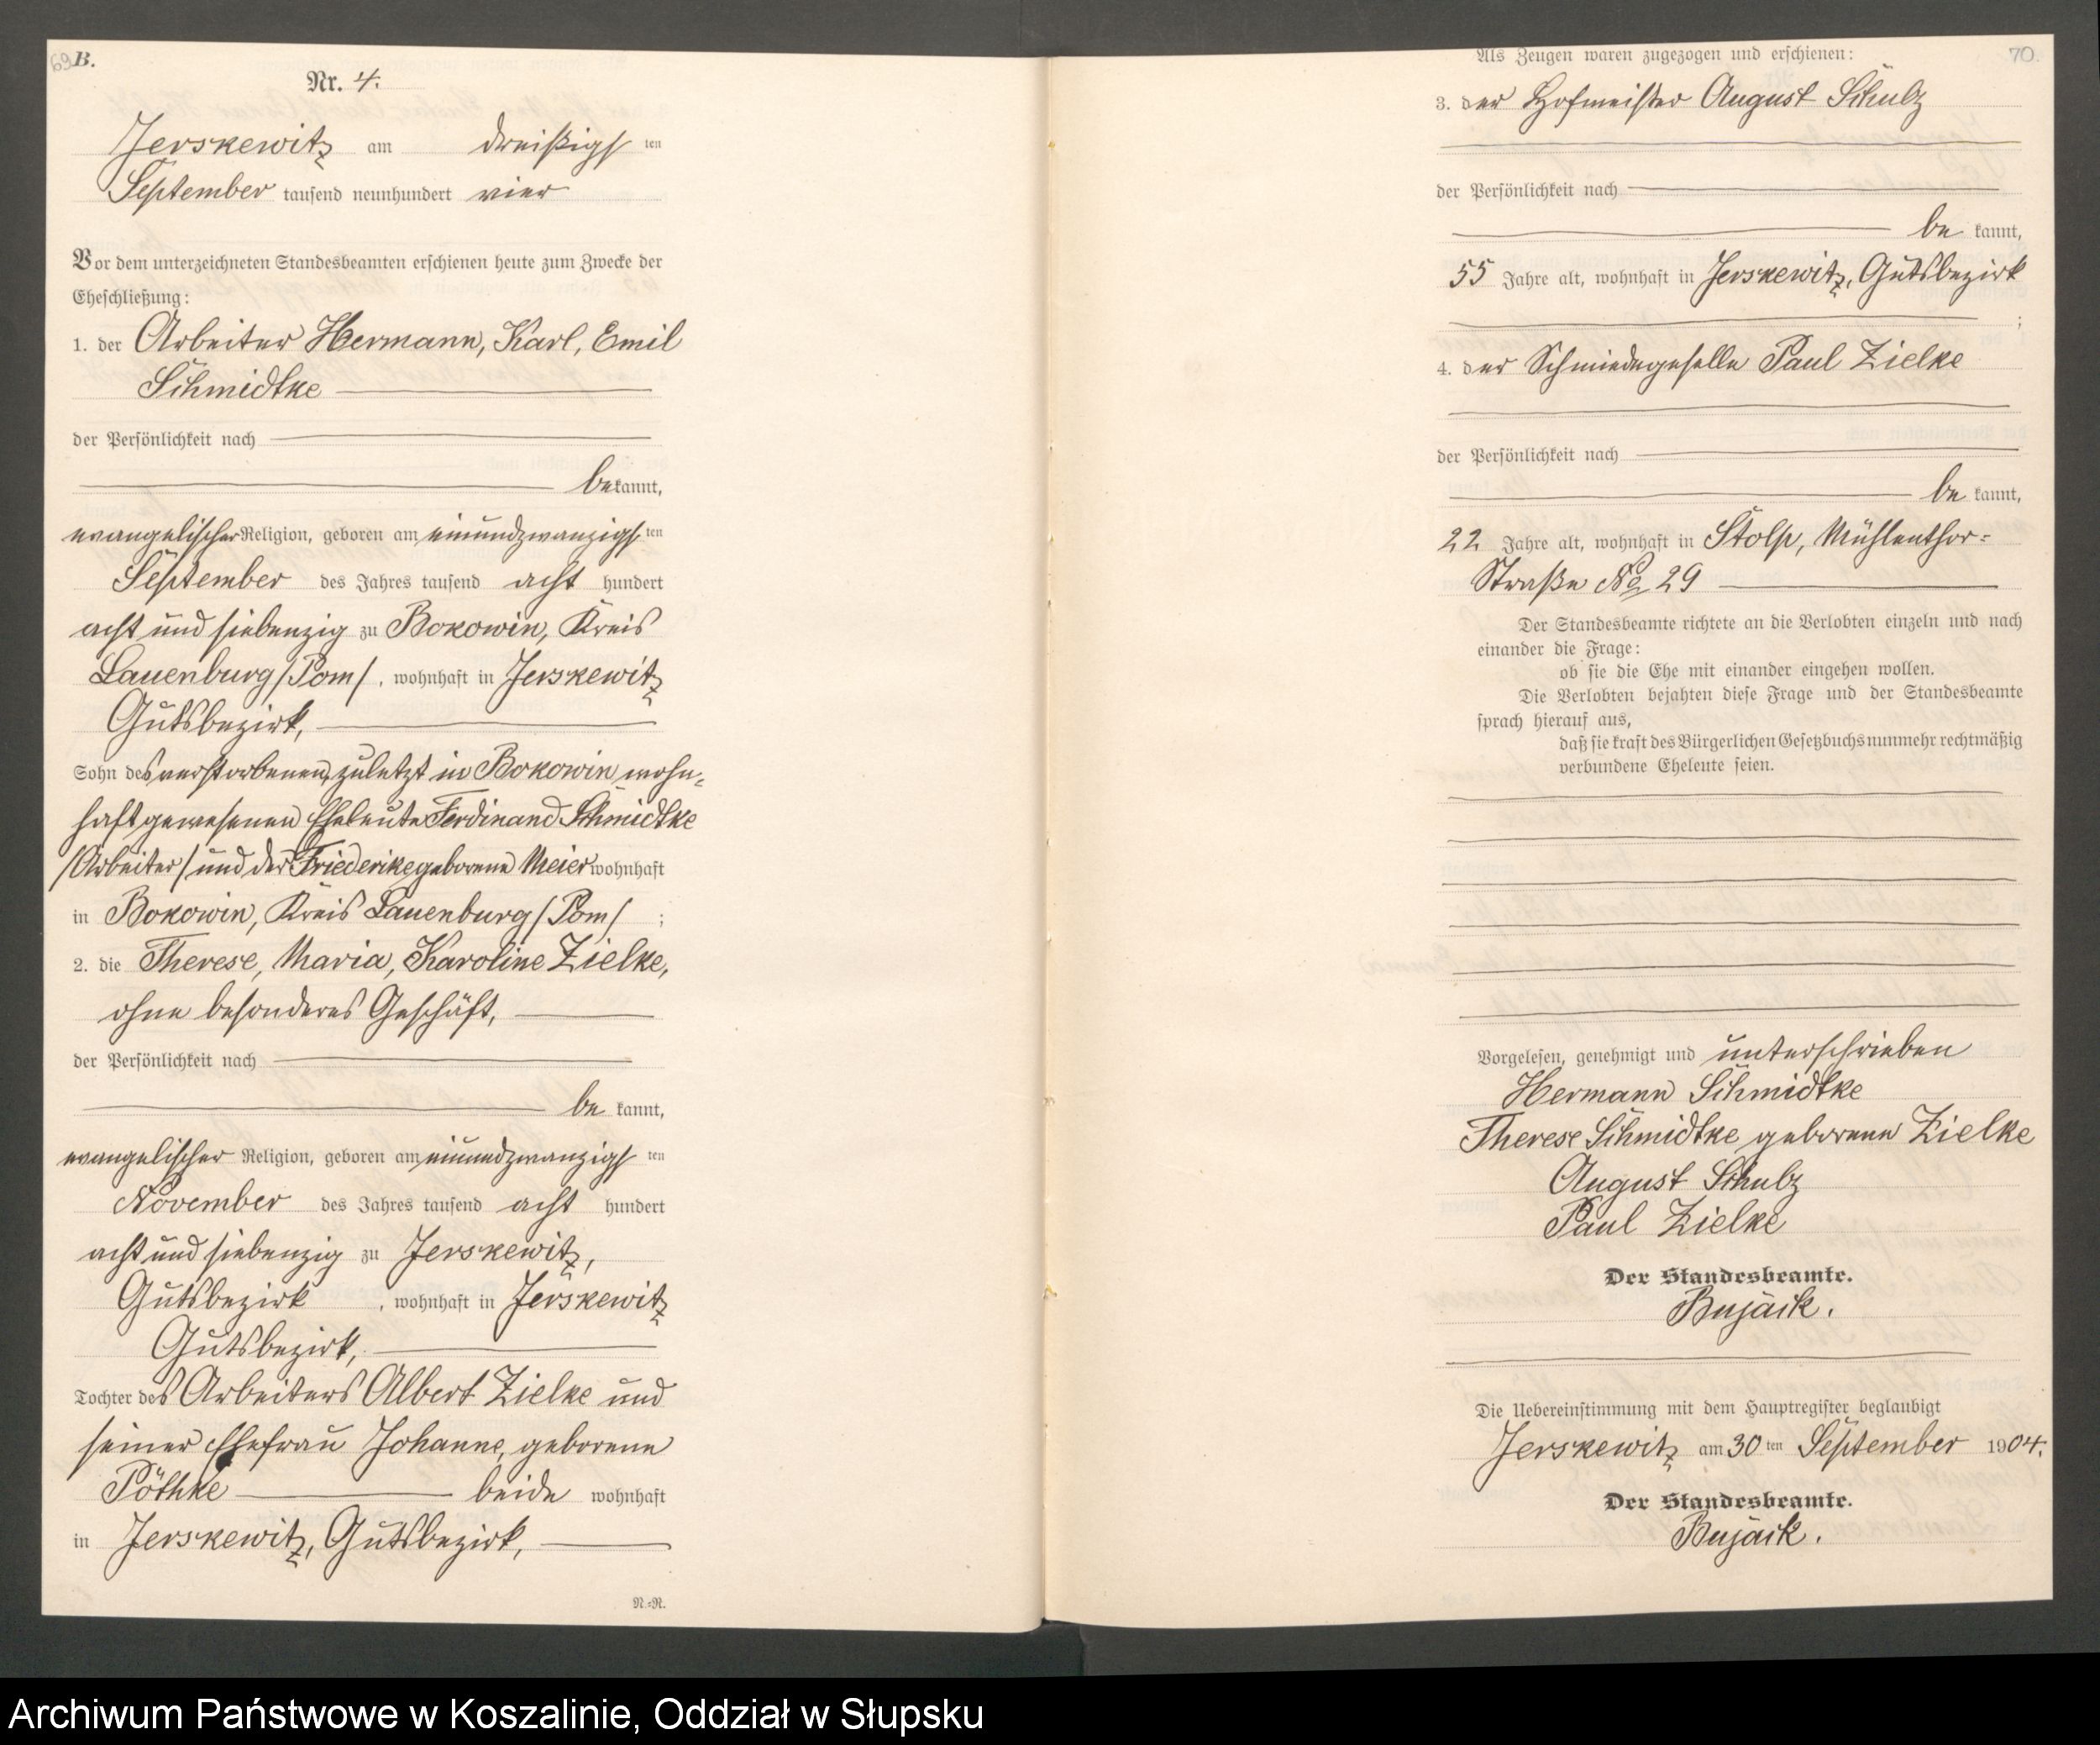 69 B.
Nr. 4.
Jerskewitz am dreißigsten
September tausend neunhundert vier
Vor dem unterzeichneten Standesbeamten erschienen heute zum Zwecke der
Eheschließung:
1. der Arbeiter Hermann, Karl, Emil
Schmidtke
der Persönlichkeit nach
bekannt,
evangelischer Religion, geboren am einundzwanzigsten
September des Jahres tausend acht hundert
acht und siebenzig zu Bokowin, Kreis
Lauenburg /Pom/, wohnhaft in Jerskewitz
Gutsbezirk,
Sohn des verstorbenen, zuletzt in Bokowin wohn-
haft gewesenen Eheleute Ferdinand Schmidtke
/Arbeiter/ und der Friederike geborene Meier wohnhaft
in Bokowin, Kreis Lauenburg /Pom/ ;
2. die Therese, Maria, Karoline Zielke,
ohne besonderes Geschäft,
der Persönlichkeit nach
be kannt,
evangelischer Religion, geboren am einundzwanzigsten
November des Jahres tausend acht hundert
acht und siebenzig zu Jerskewitz,
Gutsbezirk , wohnhaft in Jerskewitz
Gutsbezirk,
Tochter des Arbeiters Albert Zielke und
seiner Ehefrau Johanne, geborene
Pöthke beide wohnhaft
in Jerskewitz, Gutsbezirk,
N.=N.
Als Zeugen waren zugezogen und erschienen: 70.
3. der Hofmeister August Schulz
der Persönlichkeit nach
be kannt,
55 Jahre alt, wohnhaft in Jerskewitz, Gutsbezirk
;
4. der Schmiedegeselle Paul Zielke
der Persönlichkeit nach
be kannt,
22 Jahre alt, wohnhaft in Stolp, Mühlenthor-
Straße No 29
Der Standesbeamte richtete an die Verlobten einzeln und nach
einander die Frage:
ob sie die Ehe mit einander eingehen wollen.
Die Verlobten bejahten diese Frage und der Standesbeamte
sprach hierauf aus,
daß sie kraft des Bürgerlichen Gesetzbuchs nunmehr rechtmäßig
verbundene Eheleute seien.
Vorgelesen, genehmigt und unterschrieben
Hermann Schmidtke
Therese Schmidtke geborene Zielke
August Schulz
Paul Zielke
Der Standesbeamte.
Bujack.
Die Uebereinstimmung mit dem Hauptregister beglaubigt
Jerskewitz am 30 ten September 1904.
Der Standesbeamte.
Bujack.
Archiwum Państwowe w Koszalinie, Oddział w Słupsku